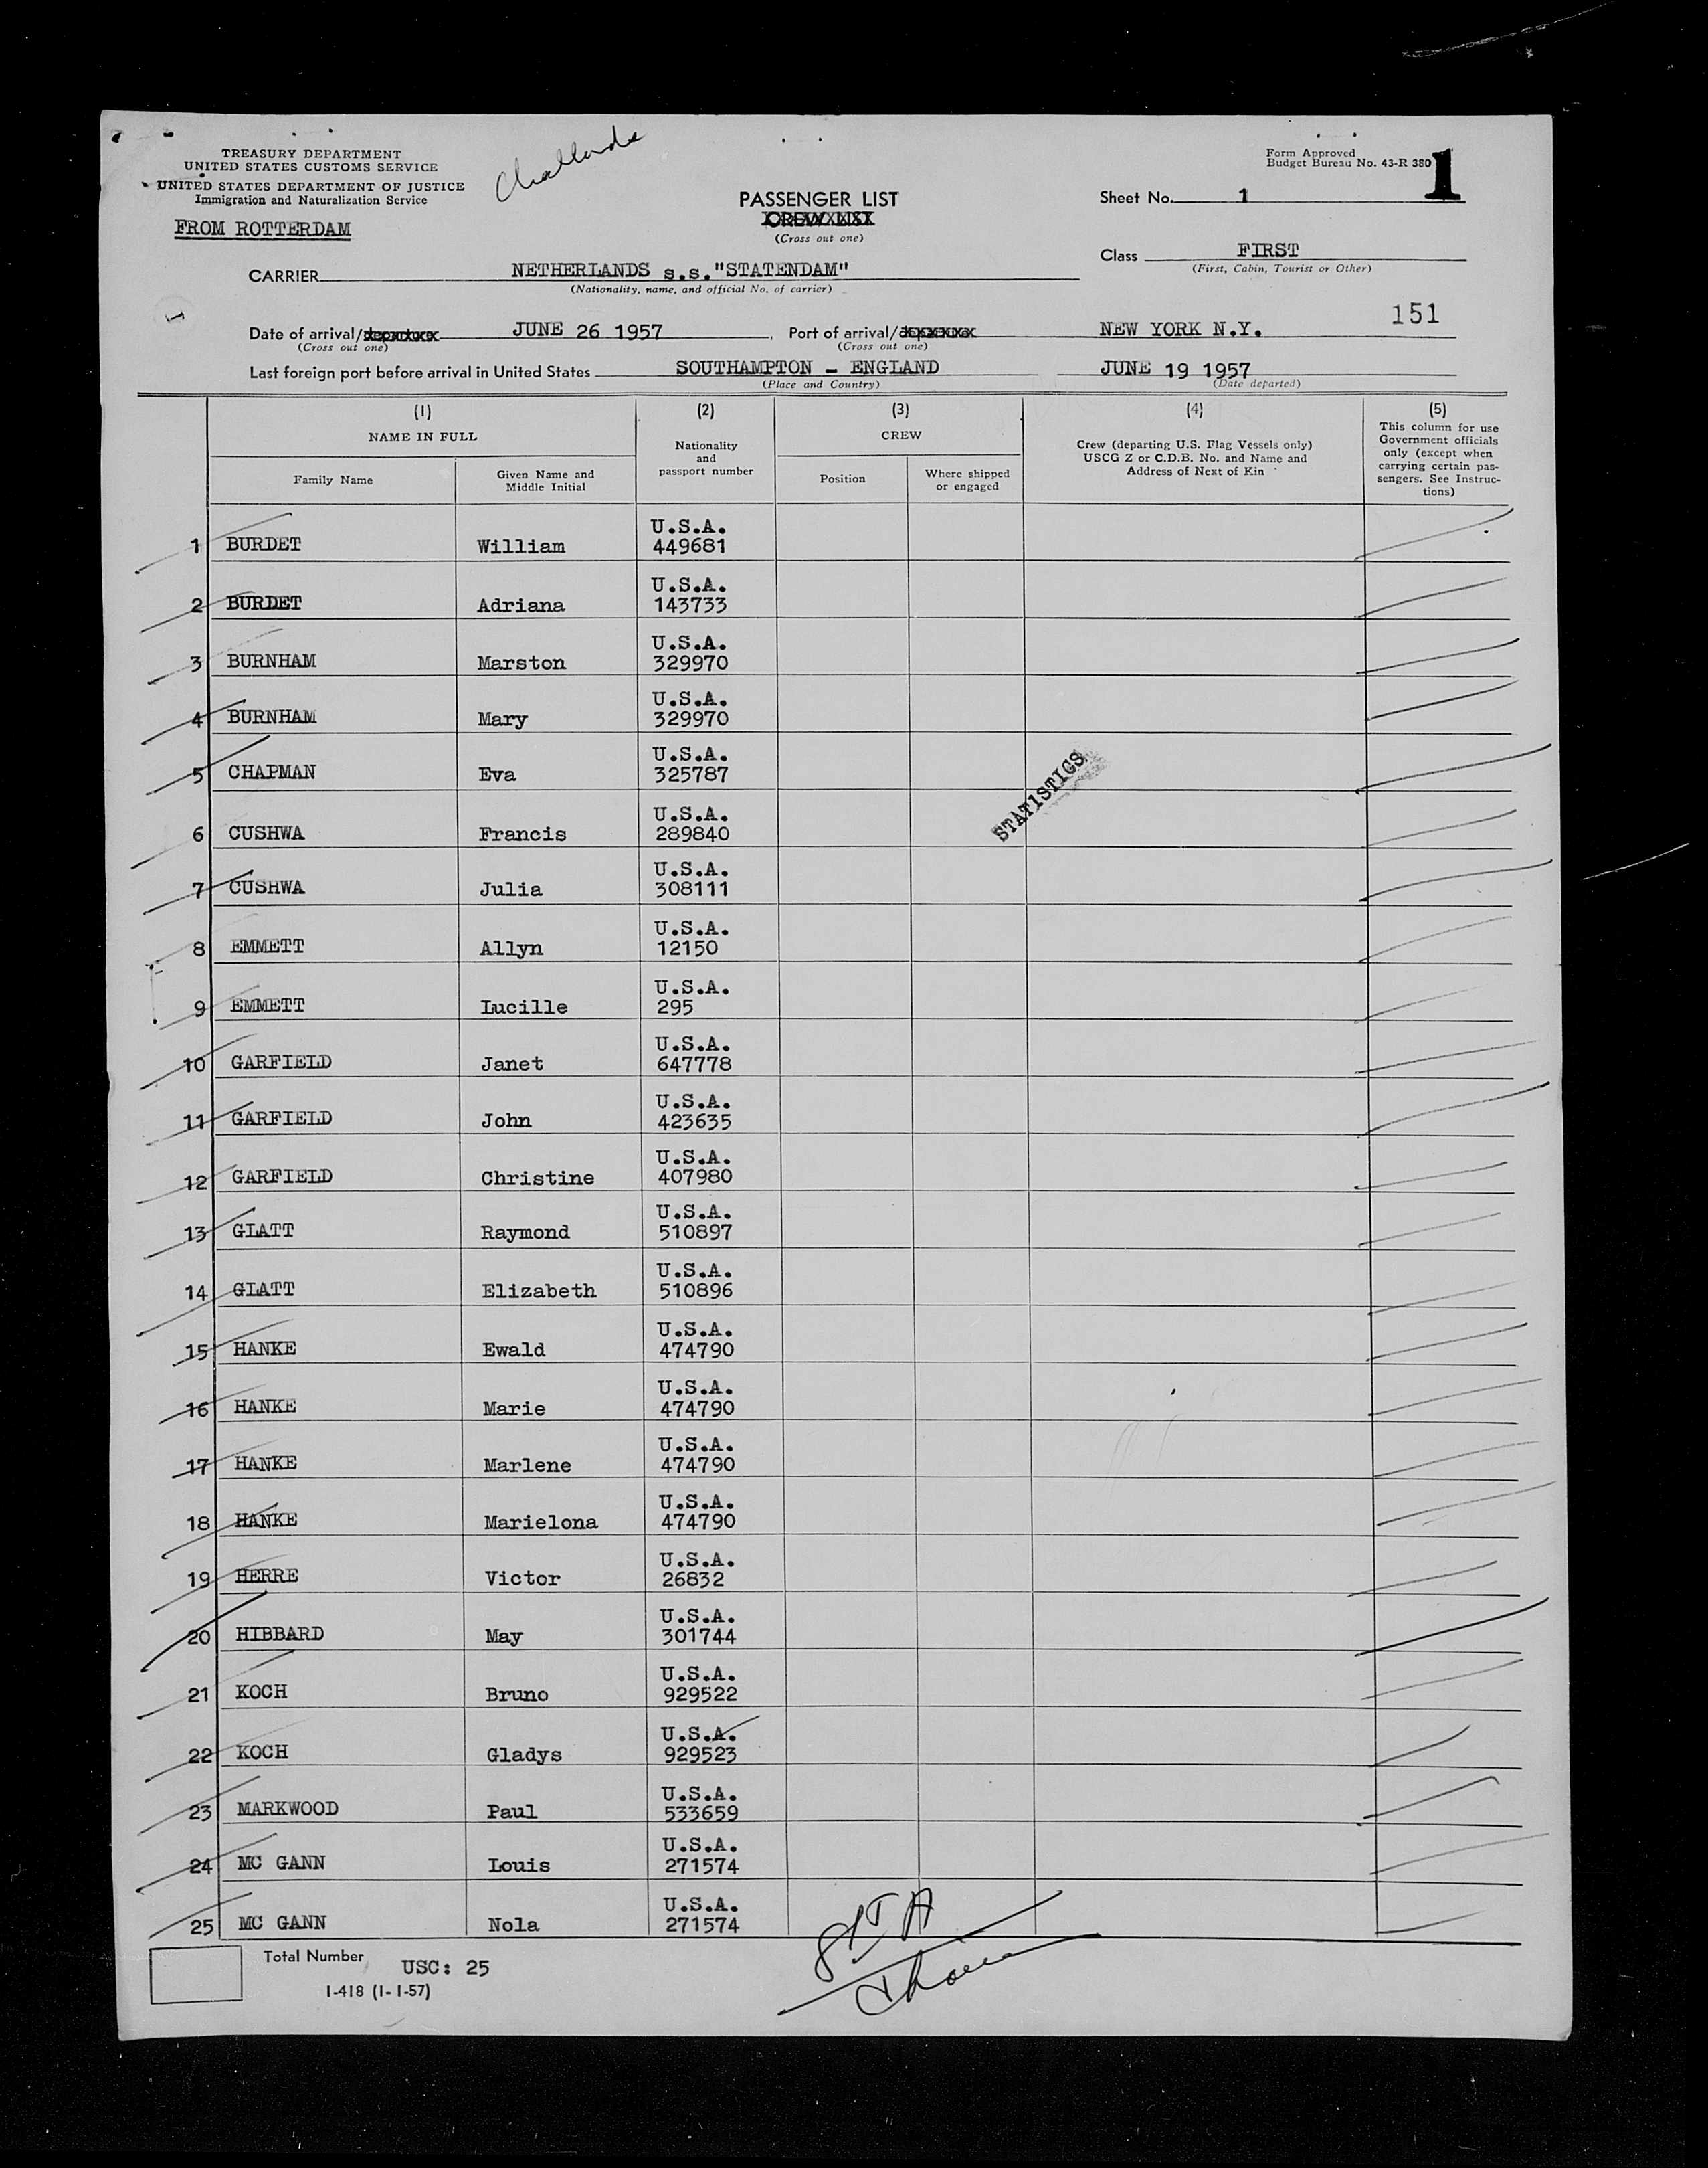 TREASURY DEPARTMENT
UNITED STATES CUSTOMS SERVICE
UNITED STATES DEPARTMENT OF JUSTICE
Immigration and Naturalization Service
FROM ROTTERDAM
PASSENGER LIST
CREW LIST
(Cross out one)
Form Approved
Budget Bureau No. 43-R 380
1
Sheet No. 1
Class FIRST
(First, Cabin, Tourist or Other)
CARRIER NETHERLANDS s.s."STATENDAM"
(Nationality, name, and official No. of carrier)
151
Date of arrival/departure JUNE 26 1957, Port of arrival/departure NEW YORK N.Y.
(Cross out one) (Cross out one)
Last foreign port before arrival in United States SOUTHAMPTON - ENGLAND JUNE 19 1957
(Place and Country) (Date departed)
(1) (2) (3) (4) (5)
NAME IN FULL
Family Name
Given Name and
Middle Initial
Nationality
and
passport number
CREW
Position
Where shipped
or engaged
Crew (departing U.S. Flag Vessels only)
USCG Z or C.D.B. No. and Name and
Address of Next of Kin
This column for use
Government officials
only (except when
carrying certain pas-
sengers. See Instruc-
tions)
U.S.A.
1 BURDET William 449681
U.S.A.
2 BURDET Adriana 143733
U.S.A.
3 BURNHAM Marston 329970
U.S.A.
4 BURNHAM Mary 329970
U.S.A.
5 CHAPMAN Eva 325787
STATISTICS
U.S.A.
6 CUSHWA Francis 289840
U.S.A.
7 CUSHWA Julia 308111
U.S.A.
8 EMMETT Allyn 12150
U.S.A.
9 EMMETT Lucille 295
U.S.A.
10 GARFIELD Janet 647778
U.S.A.
11 GARFIELD John 423635
U.S.A.
12 GARFIELD Christine 407980
U.S.A.
13 GLATT Raymond 510897
U.S.A.
14 GLATT Elizabeth 510896
U.S.A.
15 HANKE Ewald 474790
U.S.A.
16 HANKE Marie 474790
U.S.A.
17 HANKE Marlene 474790
U.S.A.
18 HANKE Marielona 474790
U.S.A.
19 HERRE Victor 26832
U.S.A.
20 HIBBARD May 301744
U.S.A.
21 KOCH Bruno 929522
U.S.A.
22 KOCH Gladys 929523
U.S.A.
23 MARKWOOD Paul 533659
U.S.A.
24 MC GANN Louis 271574
U.S.A.
25 MC GANN Nola 271574
Total Number USC: 25
I-418 (1-1-57)